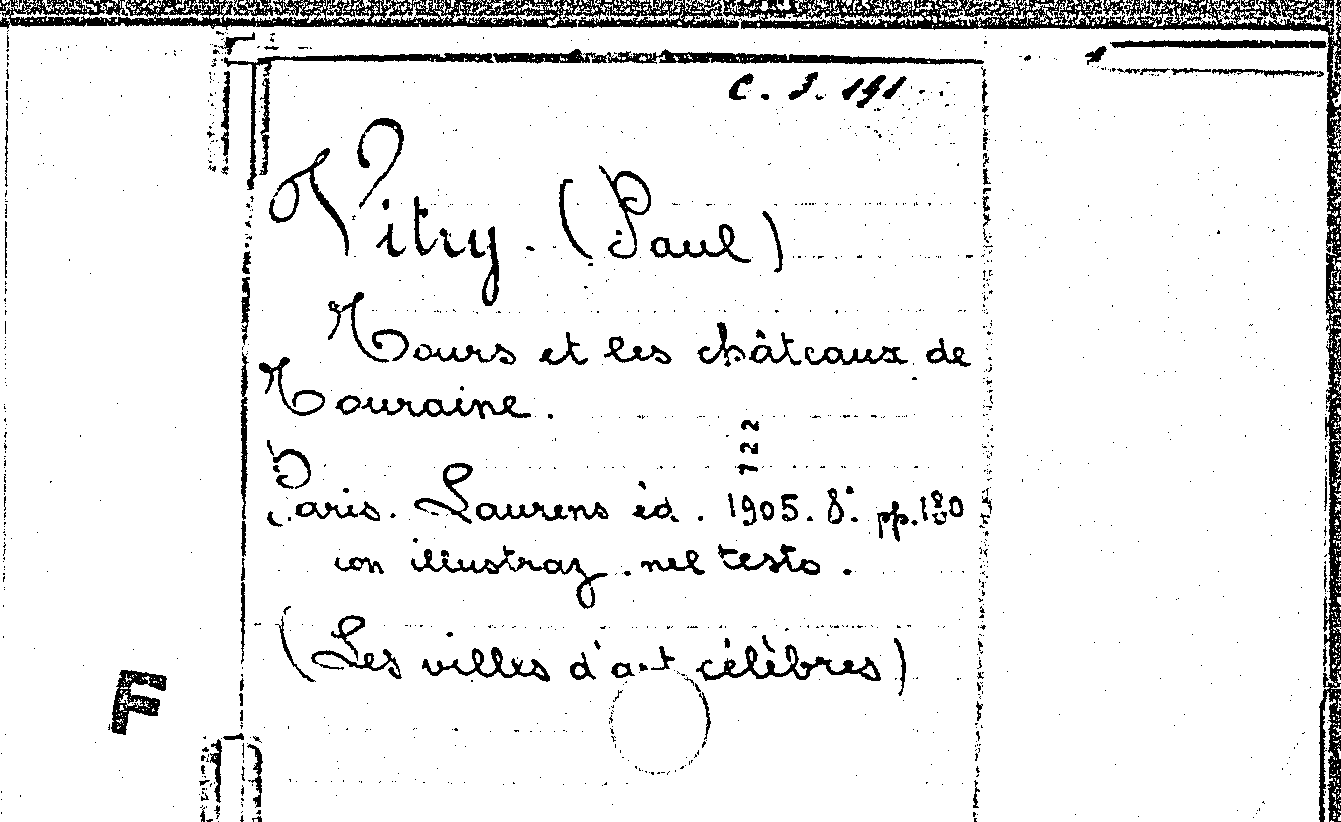 C. 3. 191
Vitry. (Paul)
Tours et les châteaux de
Touraine.
722
Paris. Laurens éd. 1905. 8.° pp. 180
con illustraz. nel testo.
(Les villes d'art célèbres)
F